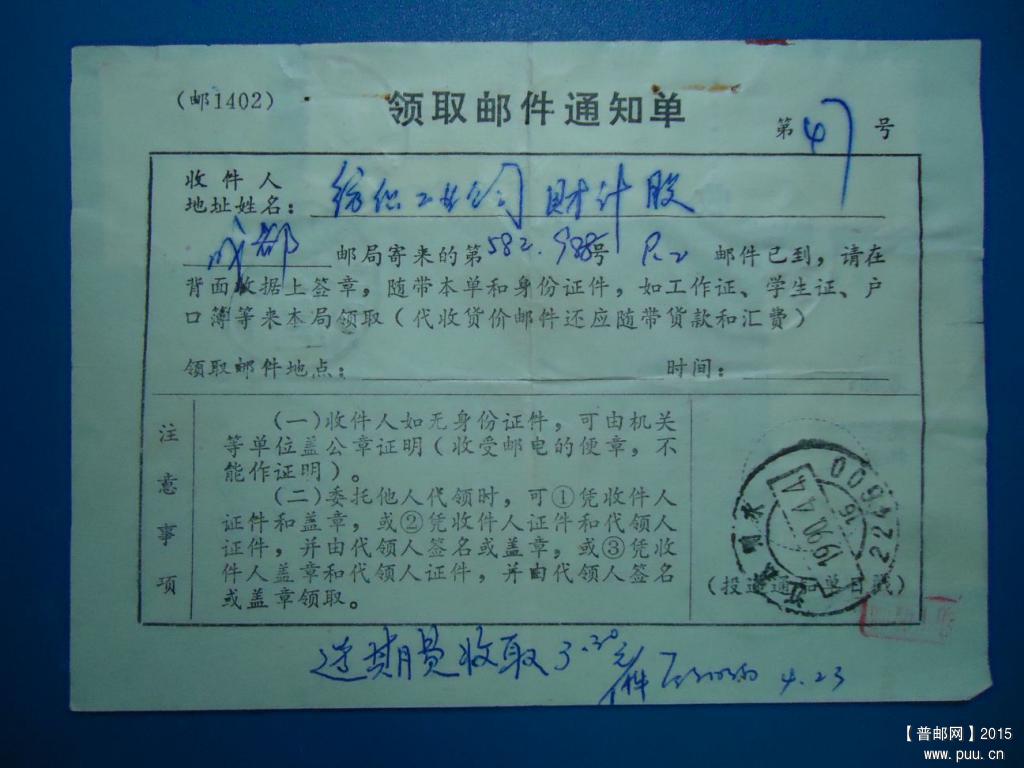 （邮1402）
领取邮件通知单
第47号
收件人
地址姓名：纺织工业公司 财计股
成都邮局寄来的第582.988号 P.2 邮件已到，请在
背面收据上签章，随带本单和身份证件，如工作证、学生证、户
口簿等来本局领取（代收货价邮件还应随带货款和汇费）
领取邮件地点： 时间：
注意事项
（一）收件人如无身份证件，可由机关
等单位盖公章证明（收受邮电的便章，不
能作证明）。
（二）委托他人代领时，可①凭收件人
证件和盖章，或②凭收件人证件和代领人
证件，并由代领人签名或盖章，或③凭收
件人盖章和代领人证件，并由代领人签名
或盖章领取。
（投递通知单日戳）
1990.4.4
过期费收取3.30元/件
4.23
【普邮网】2015
www.puu.cn